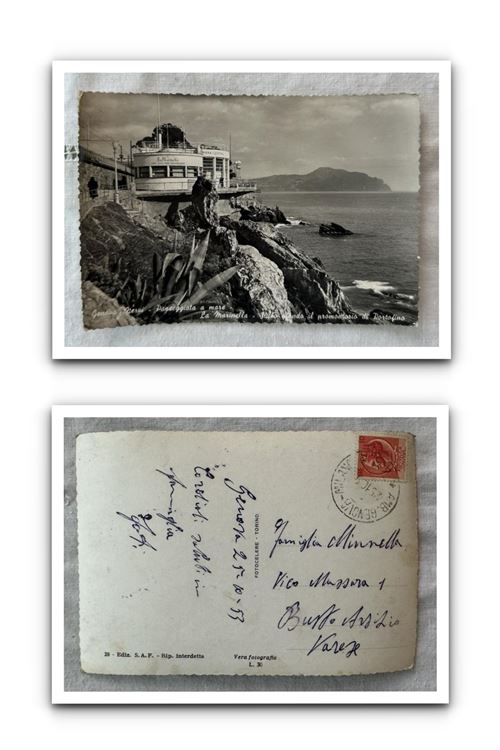 La Marinella
Genova Nervi - Passeggiata a mare
La Marinella - Sullo sfondo il promontorio di Portofino
Genova 25-10-53
Cordiali saluti
famiglia
FOTOCELERE - TORINO
Famiglia Minnella
Vico Massara 1
Busto Arsizio
Varese
28 - Ediz. S.A.F. - Rip. Interdetta
Vera fotografia
L. 30